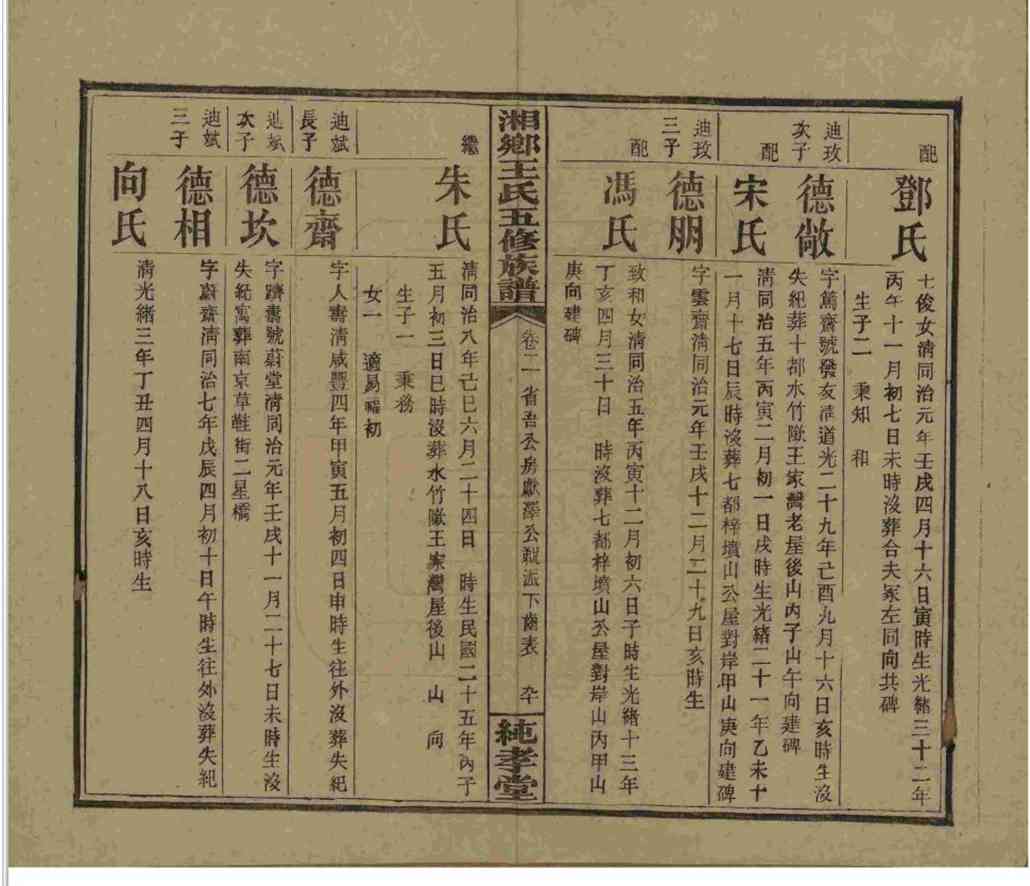 配
鄧氏
七俊女清同治元年壬戌四月十六日寅時生光緒三十二年
丙午十一月初七日未時沒葬合夫冢左同向共碑
生子二 秉知 和
迪玫
次子
德敞
字篤齋號發友清道光二十九年己酉九月十六日亥時生沒
失紀葬十都水竹塅王家灣老屋後山內子山午向建碑
配
宋氏
清同治五年丙寅二月初一日戌時生光緒二十一年乙未十
一月十七日辰時沒葬七都梓墳山公屋對岸甲山庚向建碑
迪玫
三子
德朋
字雲齋清同治元年壬戌十二月二十九日亥時生
配
馮氏
致和女清同治五年丙寅十二月初六日子時生光緒十三年
丁亥四月三十日 時沒葬七都梓墳山公屋對岸山丙甲山
庚向建碑
湘鄉王氏五修族譜
卷二 省吾公房獻澤公親派下齒表
純孝堂
繼
朱氏
清同治八年己巳六月二十四日 時生民國二十五年內子
五月初三日巳時沒葬水竹塅王家灣屋後山 山 向
生子一 秉務
女一 適易福初
迪斌
長子
德齋
字人壽清咸豐四年甲寅五月初四日申時生往外沒葬失紀
迪斌
次子
德坎
字躋壽號蔚堂清同治元年壬戌十一月二十七日未時生沒
失紀寓葬南京草鞋街二星橋
迪斌
三子
德相
字蔚齋清同治七年戊辰四月初十日午時生往外沒葬失紀
向氏
清光緒三年丁丑四月十八日亥時生